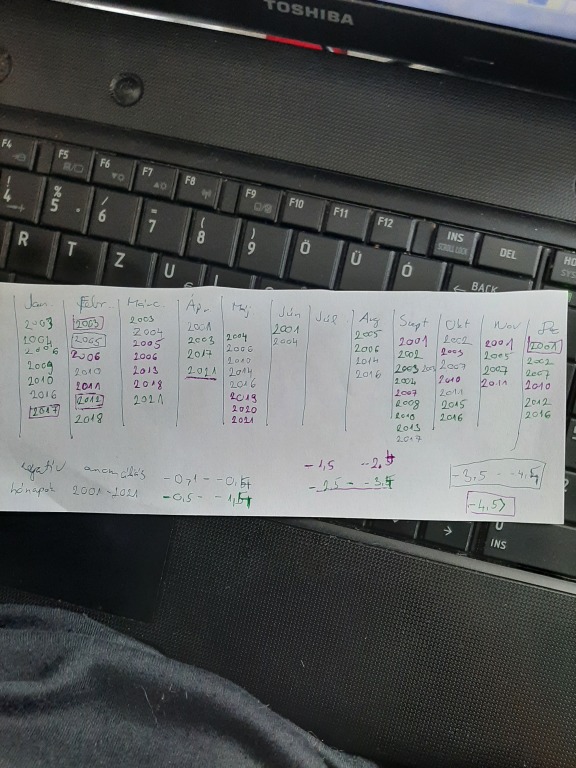 TOSHIBA
F4 F5 F6 F7 F8 F9 F10 F11 F12 INS DEL
SCROLL LOCK
! 4 % 5 / 6 = 7 ( 8 ) 9 Ö Ü Ó
BACK
R T Z U
Jan Febr. Márc. Ápr. Máj Jún Júl Aug Szept Okt Nov Dec
2003 2003 2003 2001 2004 2001 2005 2001 2002 2001 2001
2004 2005 2004 2003 2006 2004 2006 2002 2003 2005 2002
2006 2006 2005 2017 2010 2014 2003 2007 2007 2007
2009 2010 2006 2021 2014 2016 2004 2010 2011 2010
2010 2011 2013 2016 2007 2011 2012
2016 2012 2018 2019 2008 2015 2016
2017 2018 2021 2020 2010 2016
2021 2013
2017
negatív anomáliás -0,1 - -0,5 -1,5 -2,5 -3,5 - -4,5
hónapok 2001-2021 -0,5 - -1,5 -2,5 - -3,5 -4,5>
INS